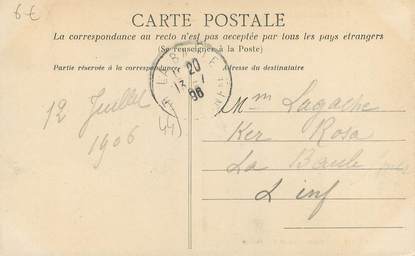 6€
CARTE POSTALE
La correspondance au recto n'est pas acceptée par tous les pays étrangers
(Se renseigner à la Poste)
Partie réservée à la correspondance
Adresse du destinataire
LA BAULE
20
13
06
12 Juillet
1906
44
Lagache
Ker Rosa
La Baule
L inf